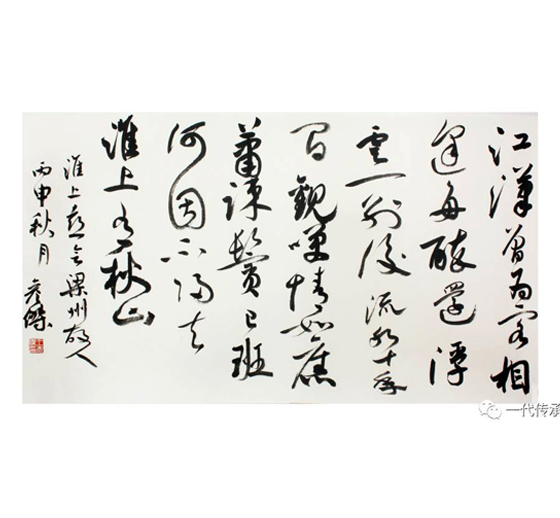 江漢曾為客相
逢每醉還浮
雲一别後流水十年
間歡笑情如舊
蕭疎鬢已班
何因不歸去
淮上有秋山
淮上喜会梁州故人
丙申秋月
一代传承